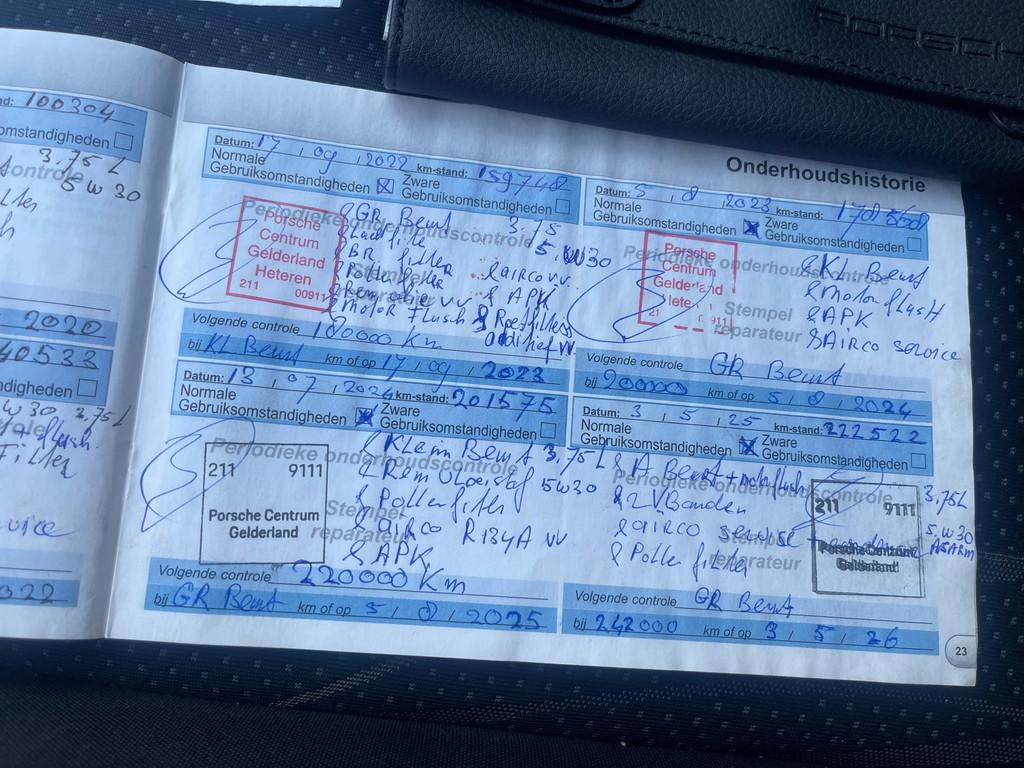 PORSCH
d: 100304
omstandigheden
3.75 L
ontrole
5w30
2020
40533
digheden
w30 3.75L
Filter
vice
022
Onderhoudshistorie
Datum: 17 , 09 , 2022 km-stand: 159748
Normale Gebruiksomstandigheden
Zware Gebruiksomstandigheden
Periodieke onderhoudscontrole
Stempel
Porsche
Centrum
Gelderland
Heteren
211 00911
& GR Beurt 3.75
5.W30
& BR filter
& airco vv.
& APK
& Motor flush
Volgende controle 180000 Km
bij KL Beurt km of op 17 , 09 , 2023
Datum: 5 , 8 , 2023 km-stand: 178558
Normale Gebruiksomstandigheden
Zware Gebruiksomstandigheden
Periodieke onderhoudscontrole
Stempel
reparateur
Porsche
Centrum
& KL Beurt
& motor flush
& APK
& AIRCO service
Volgende controle GR Beurt
bij 200000 km of op 5 , 8 , 2024
Datum: 13 , 07 , 2024 km-stand: 201575
Normale Gebruiksomstandigheden
Zware Gebruiksomstandigheden
Periodieke onderhoudscontrole
Stempel
reparateur
211 9111
Porsche Centrum
Gelderland
& Klein Beurt 3,75 L
5W30
& Pollenfilter
& airco R134A vv
& APK
Volgende controle 220000 Km
bij GR Beurt km of op 5 , 8 , 2025
Datum: 3 , 5 , 25 km-stand: 222522
Normale Gebruiksomstandigheden
Zware Gebruiksomstandigheden
Periodieke onderhoudscontrole
Stempel
reparateur
211 9111
Porsche Centrum
Gelderland
& 2 V Banden
& airco service
3,75L
5w30
Volgende controle GR Beurt
bij 242000 km of op 3 , 5 , 26
23